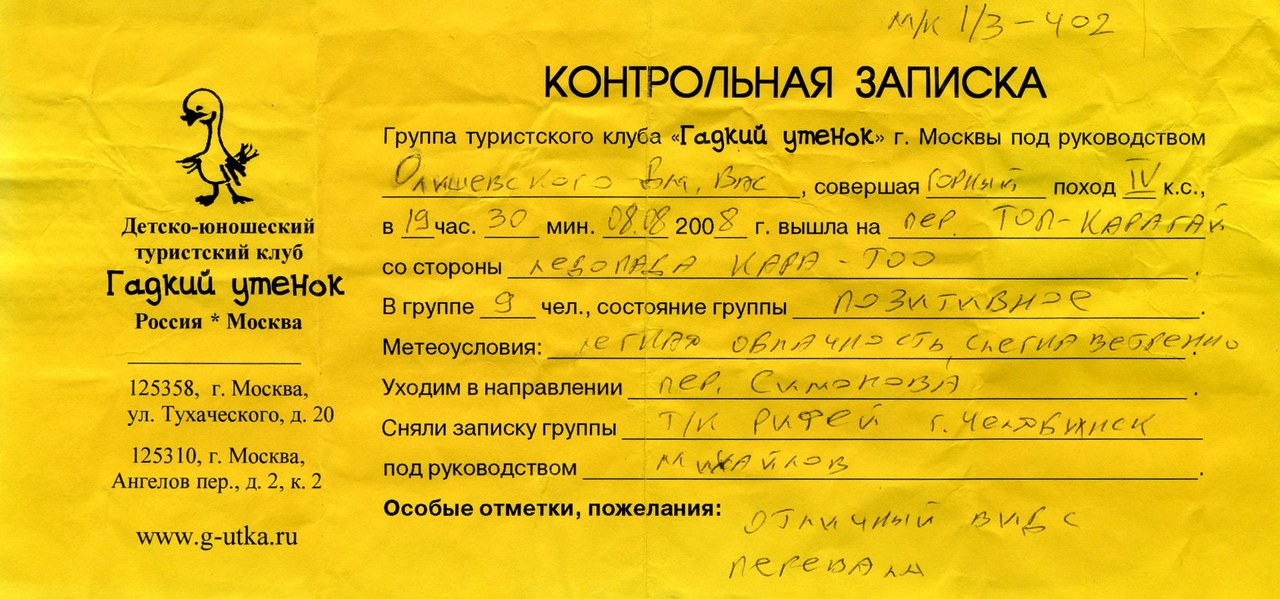 М/К 1/3-402
КОНТРОЛЬНАЯ ЗАПИСКА
Группа туристского клуба «Гадкий утенок» г. Москвы под руководством
Олишевского Вл. Вяс, совершая ГОРНЫЙ поход IV к.с.,
в 19 час. 30 мин. 08.08 2008 г. вышла на пер. ТОП-КАРАГАЙ
со стороны ледопада КАРА-ТОО.
В группе 9 чел., состояние группы ПОЗИТИВНОЕ.
Метеоусловия: легкая облачность, слегка ветренно.
Уходим в направлении пер. Симонова.
Сняли записку группы Т/К РИФЕЙ г. Челябинск
под руководством Михайлов.
Особые отметки, пожелания: отличный вид с
перевала
Детско-юношеский
туристский клуб
Гадкий утенок
Россия * Москва
125358, г. Москва,
ул. Тухаческого, д. 20
125310, г. Москва,
Ангелов пер., д. 2, к. 2
www.g-utka.ru